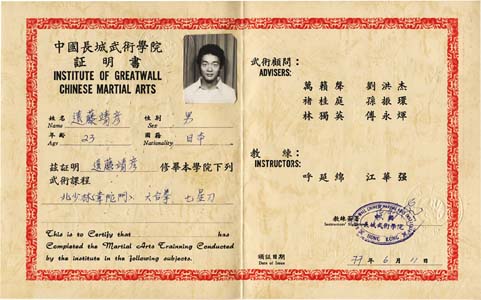 中國長城武術學院
証明書
INSTITUTE OF GREATWALL
CHINESE MARTIAL ARTS
姓名 遠藤靖彦 性別 男
Name Sex
年齡 23 國籍 日本
Age Nationality
茲証明 遠藤靖彦 修畢本學院下列
武術課程
北少林(韋陀門) 六合拳 七星刀
This is to Certify that has
Completed the Martial Arts Training Conducted
by the institute in the following subjects.
武術顧問:
ADVISERS:
萬籟聲 劉洪杰
褚桂庭 孫振環
林獨英 傅永煇
教練:
INSTRUCTORS:
呼延綿 江華强
教練簽署
Instructors'
長城武術學院
HONG KONG
頒証日期 77年6月11日
Date of Issue